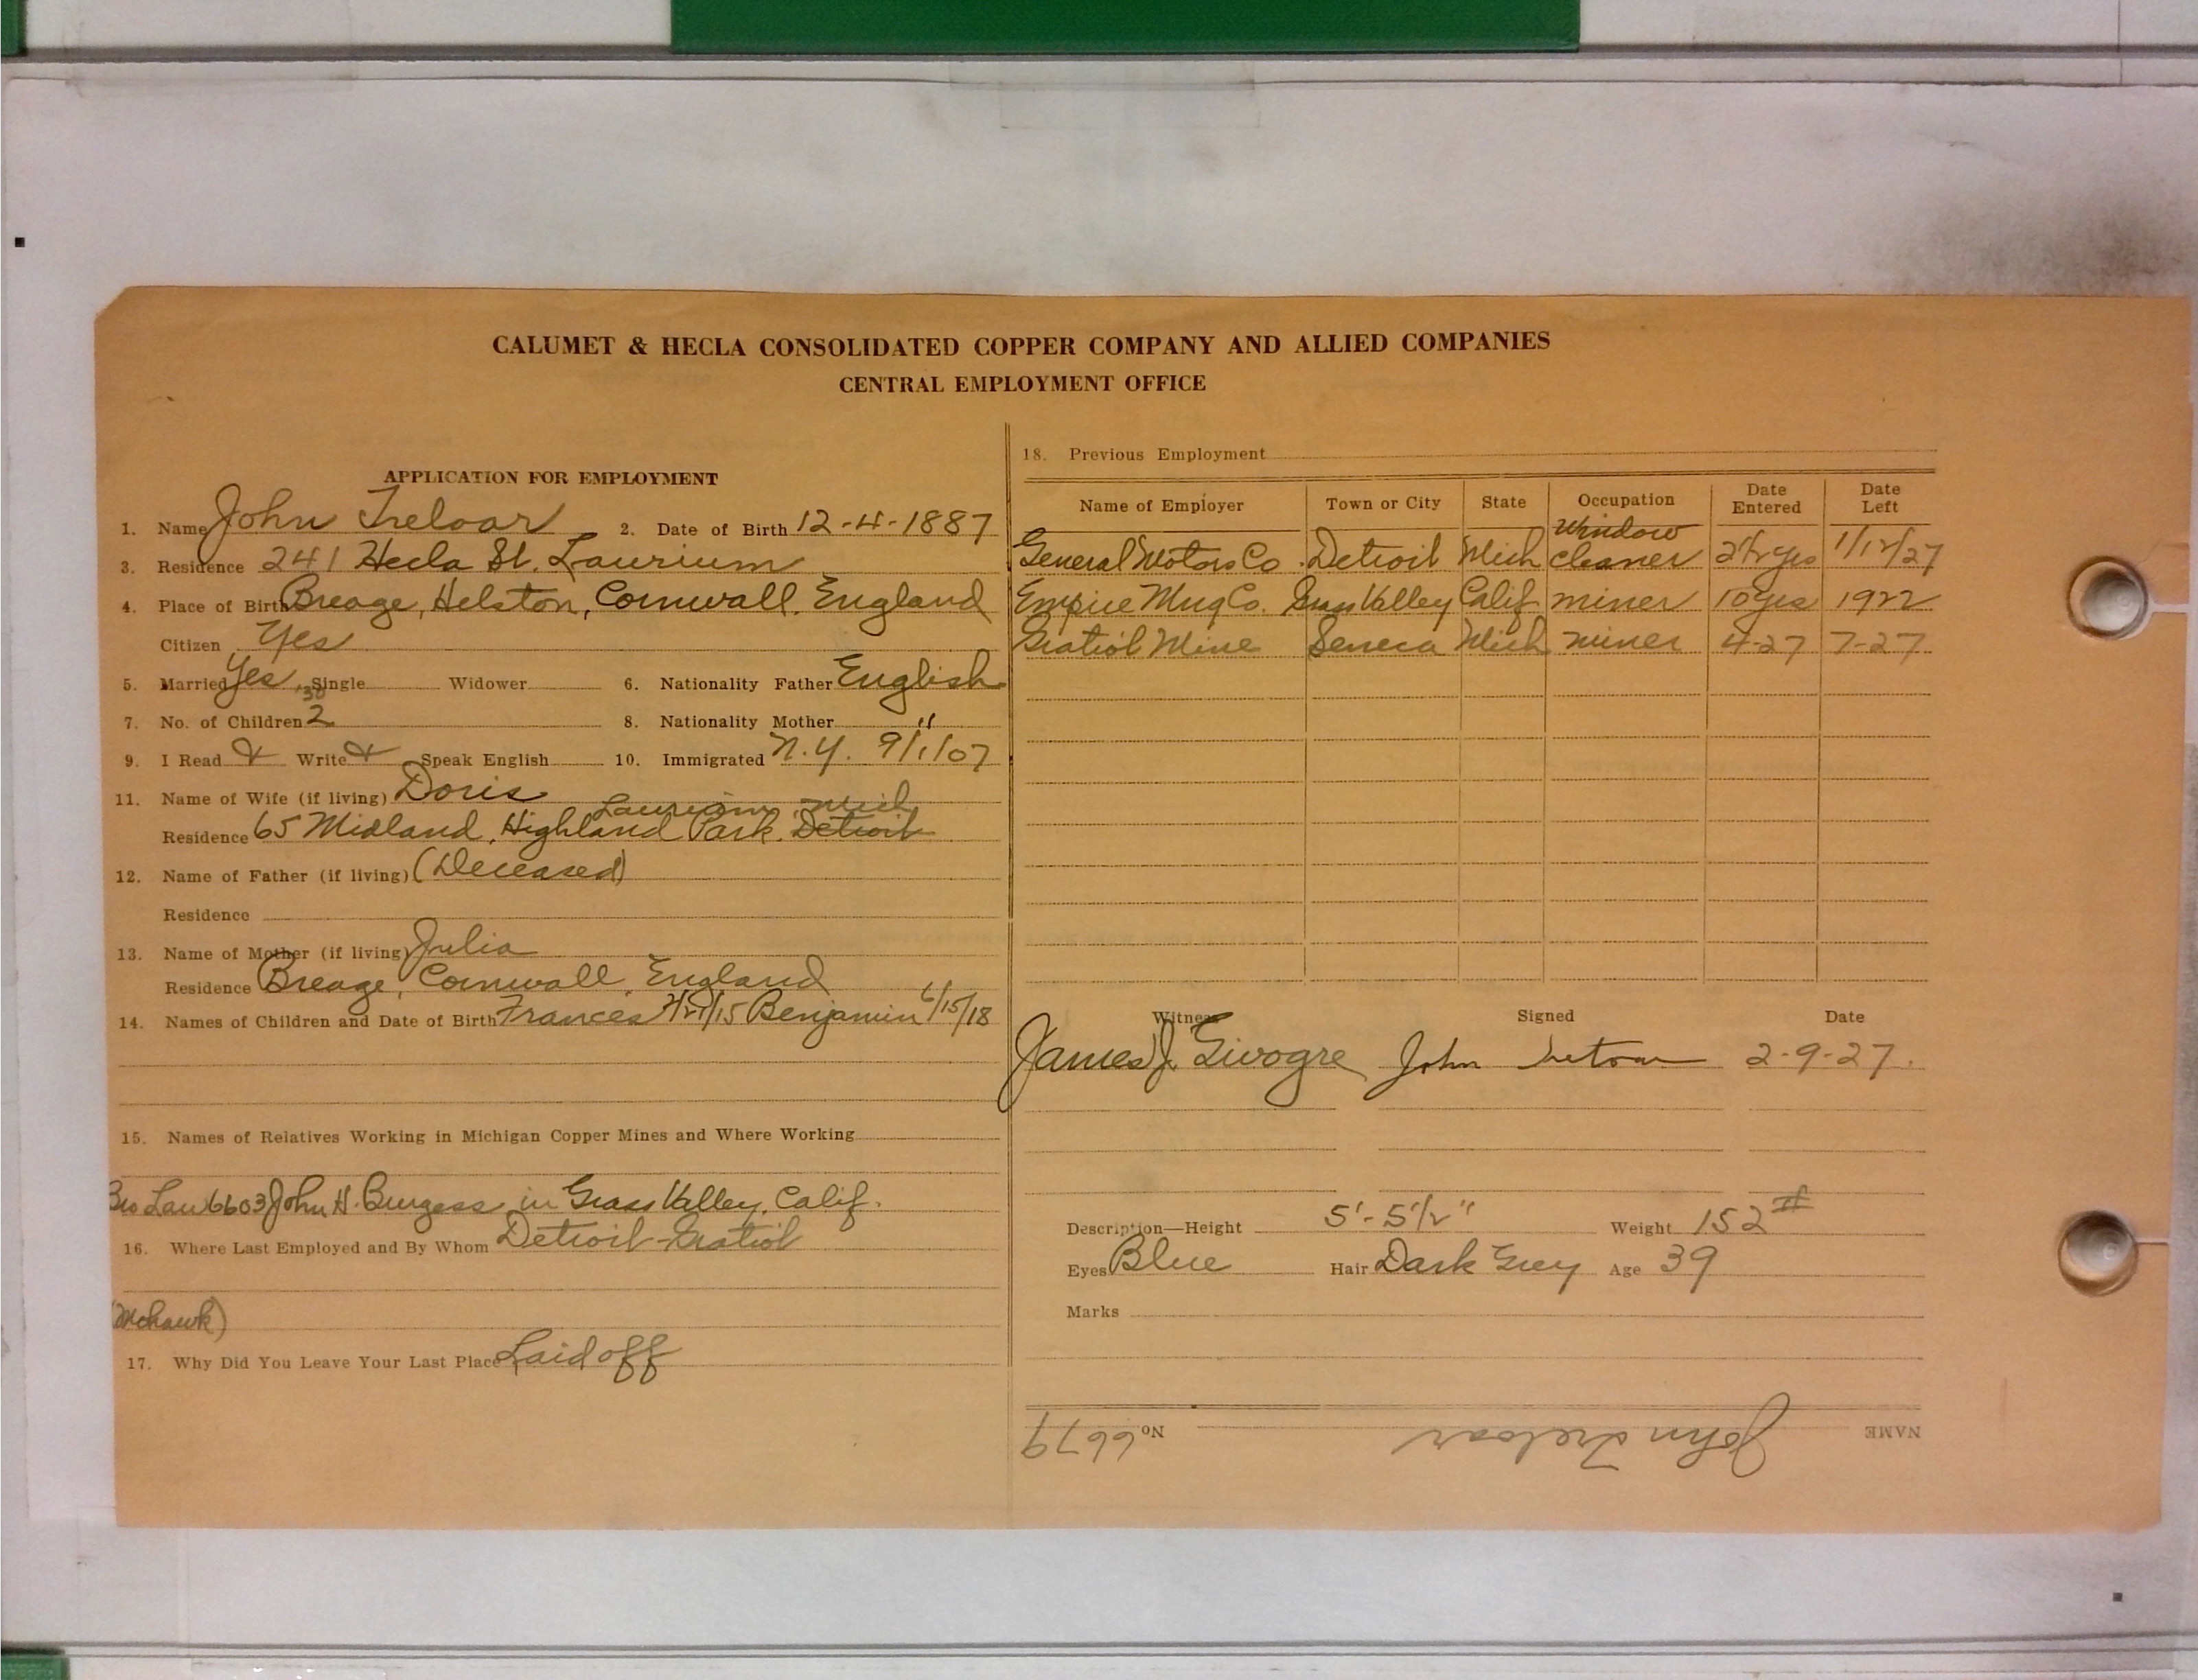 CALUMET & HECLA CONSOLIDATED COPPER COMPANY AND ALLIED COMPANIES
CENTRAL EMPLOYMENT OFFICE
APPLICATION FOR EMPLOYMENT
1. Name John Treloar 2. Date of Birth 12-4-1887
3. Residence 241 Hecla St. Laurium
4. Place of Birth Breage, Helston, Cornwall, England
Citizen Yes
5. Married Yes Single Widower 6. Nationality Father English
7. No. of Children 2 8. Nationality Mother "
9. I Read & Write & Speak English 10. Immigrated N.Y. 9/1/07
11. Name of Wife (if living) Doris
Laurium Mich
Residence 65 Midland, Highland Park, Detroit
12. Name of Father (if living) (Deceased)
Residence
13. Name of Mother (if living) Julia
Residence Breage, Cornwall, England
14. Names of Children and Date of Birth Frances Benjamin 6/15/18
15. Names of Relatives Working in Michigan Copper Mines and Where Working
Bro Law 6603 John H. Burgess in Grass Valley, Calif.
16. Where Last Employed and By Whom Detroit-Gratiot
(Mohawk)
17. Why Did You Leave Your Last Place Laid off
18. Previous Employment
Name of Employer Town or City State Occupation Date Entered Date Left
General Motors Co. Detroit Mich Window cleaner 2 1/2 yrs 1/12/27
Empire Mng Co. Grass Valley Calif miner 10 yrs 1922
Gratiot Mine Seneca Mich miner 4-27 7-27
Witness Signed Date
James J. John Treloar 2-9-27.
Description—Height 5'-5 1/2" Weight 152#
Eyes Blue Hair Dark Grey Age 39
Marks
NAME John Treloar No. 6679